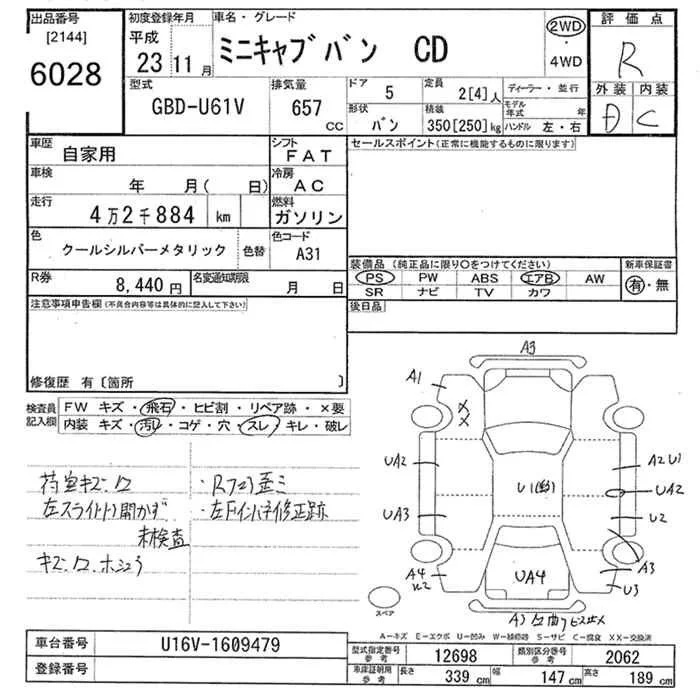 出品番号
[2144]
6028
初度登録年月
平成
23 11月
車名・グレード
ミニキャブバン CD
2WD
・
4WD
評価点
R
外装 内装
D C
型式
GBD-U61V
排気量
657
CC
ドア
5
定員
2[4]人
ディーラー・並行
形状
バン
積載
350[250]kg
モデル年式 年
ハンドル 左・右
車歴
自家用
シフト
FAT
セールスポイント(正常に機能するものに限ります)
車検
年 月( 日)
冷房
AC
走行
4万2千884 km
燃料
ガソリン
色
クールシルバーメタリック
色替
色コード
A31
装備品(純正品に限り○をつけてください)
新車保証書
PS PW ABS エアB AW
有・無
SR ナビ TV カワ
R券
8,440円
名変通知期限
月 日
後日品
注意事項申告欄(不具合内容等は具体的に記入して下さい)
修復歴 有〔箇所 〕
検査員
記入欄
FW キズ・飛石・ヒビ割・リペア跡・×要
内装 キズ・汚レ・コゲ・穴・スレ・キレ・破レ
荷室キズ、凹
・Rフロア歪ミ
左スライドドア開かず
・左Fインパネ修正跡
未検査
キズ、凹、ホショウ
A3
A1
X
X
UA2
UA3
A4
U2
UA4
A2 U1
UA2
U2
A3
U3
スペア
A-キズ E-エクボ U-凹み W-補修跡 S-サビ C-腐食 XX-交換済
車台番号
U16V-1609479
登録番号
型式指定番号
参考
12698
類別区分番号
参考
2062
車庫証明用
参考
長さ
339 cm
幅
147 cm
高さ
189 cm